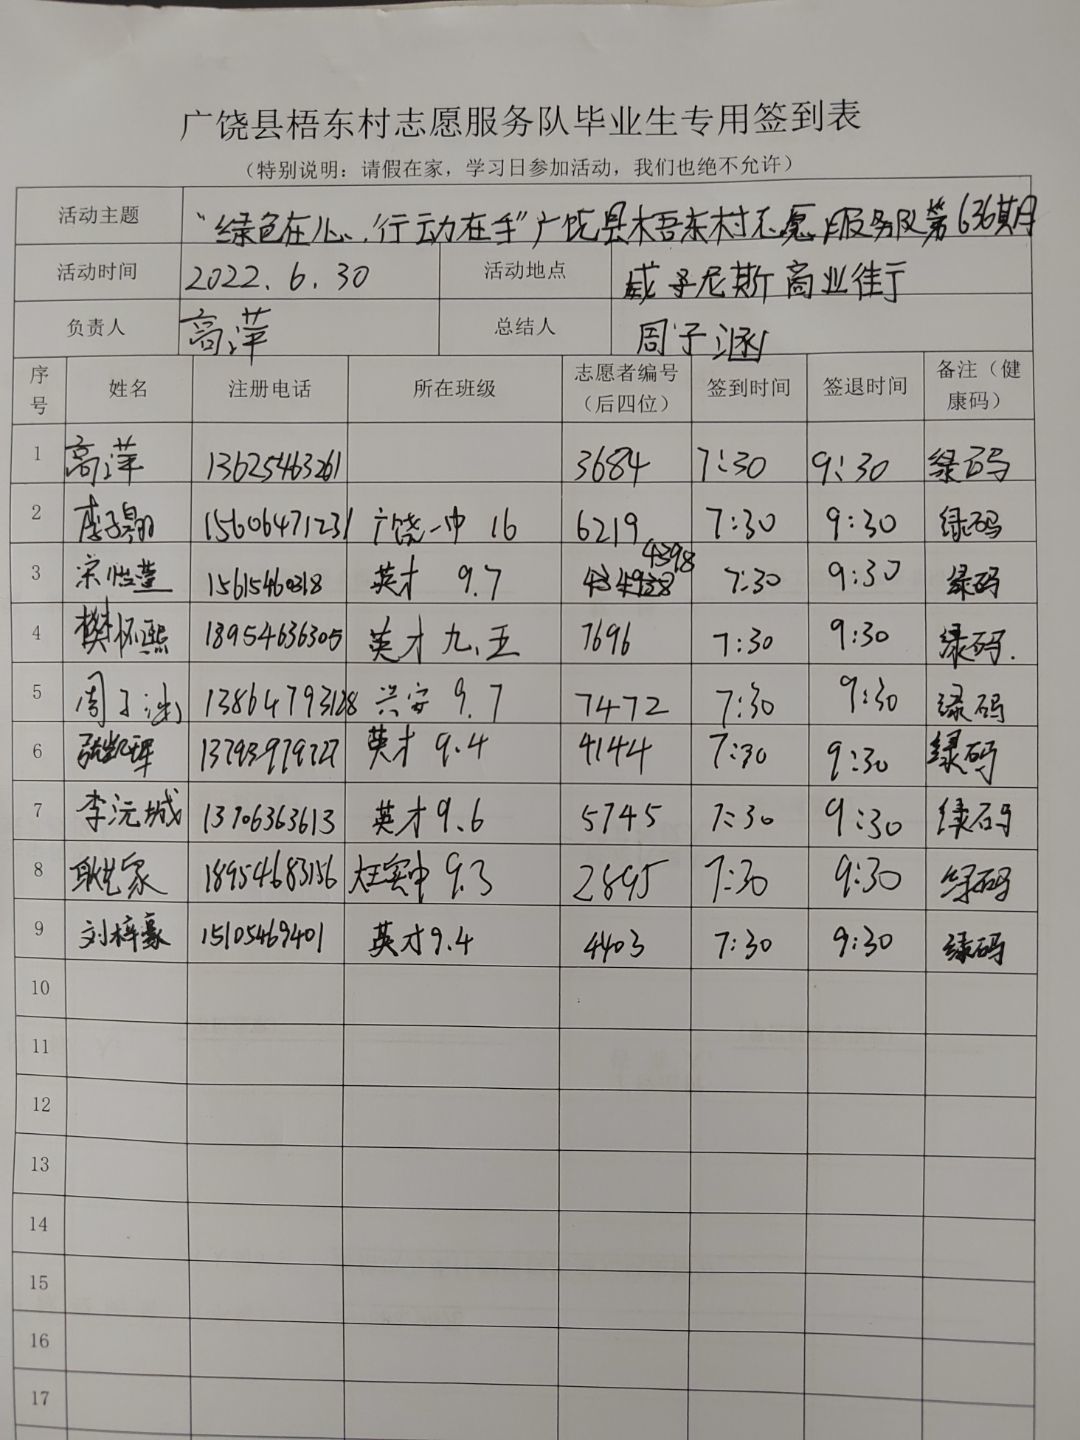 广饶县梧东村志愿服务队毕业生专用签到表
（特别说明：请假在家，学习日参加活动，我们也绝不允许）
活动主题 “绿色在心，行动在手”广饶县梧东村志愿服务队第636期
活动时间 2022.6.30 活动地点 威尼斯商业街
负责人 高萍 总结人 周子涵
序号 姓名 注册电话 所在班级 志愿者编号（后四位） 签到时间 签退时间 备注（健康码）
1 高萍 13625463261 3684 7:30 9:30 绿码
2 李子翱 15606471231 广饶一中 16 6219 7:30 9:30 绿码
3 宋怡萱 15615460318 英才 9.7 4398 7:30 9:30 绿码
4 樊怀熙 18954636305 英才 九.五 7696 7:30 9:30 绿码.
5 周子涵 13864793128 兴安 9.7 7472 7:30 9:30 绿码
6 张凯珲 13793979727 英才 9.4 4144 7:30 9:30 绿码
7 李沅城 13706363613 英才9.6 5745 7:30 9:30 绿码
8 耿艺家 18954683156 大王实中 9.3 2895 7:30 9:30 绿码
9 刘梓豪 15105469401 英才9.4 4403 7:30 9:30 绿码
10
11
12
13
14
15
16
17